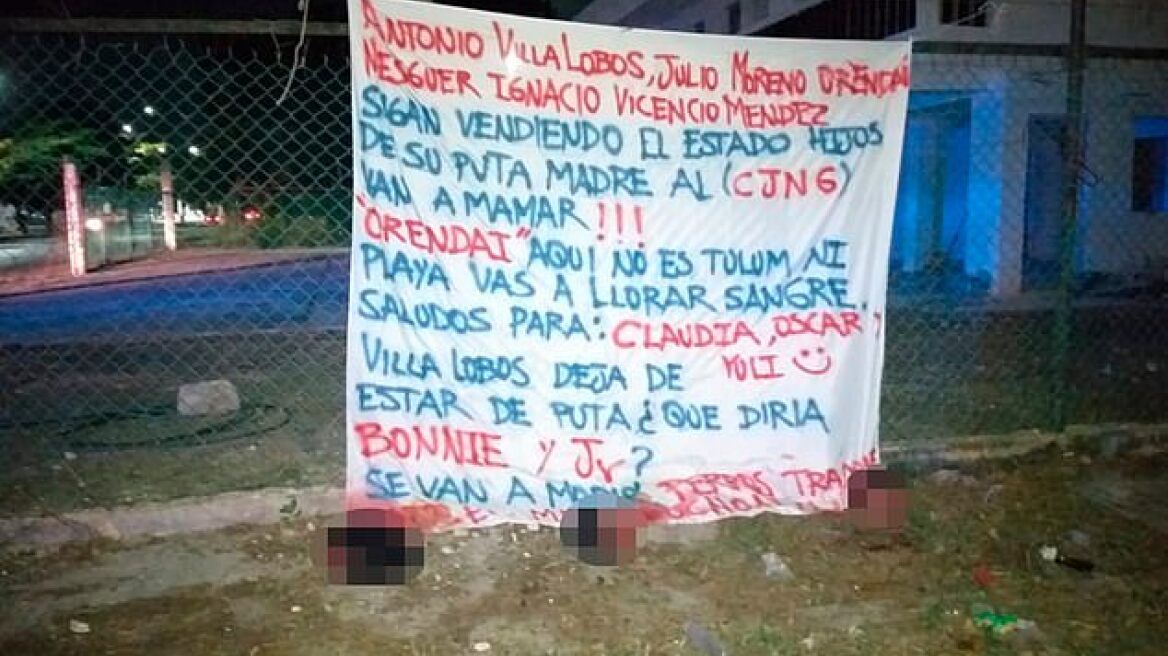 ANTONIO VILLALOBOS, JULIO MORENO ORENDAÍ
NESGUER IGNACIO VICENCIO MENDEZ
SIGAN VENDIENDO EL ESTADO HIJOS
DE SU PUTA MADRE AL (CJNG)
VAN A MAMAR !!!
"ORENDAI" AQUI NO ES TULUM NI
PLAYA VAS A LLORAR SANGRE.
SALUDOS PARA: CLAUDIA, OSCAR Y
YULI
VILLA LOBOS DEJA DE
ESTAR DE PUTA ¿ QUE DIRIA
BONNIE Y Jr?
SE VAN A